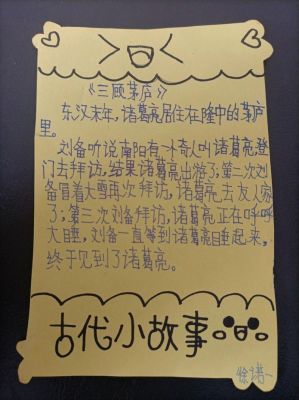 《三顾茅庐》
东汉末年,诸葛亮居住在隆中的茅庐
里。
刘备听说南阳有一个奇人叫诸葛亮,登
门去拜访,结果诸葛亮出游了;第二次刘
备冒着大雪再次拜访,诸葛亮去友人家
了;第三次刘备拜访,诸葛亮正在呼呼
大睡,刘备一直等到诸葛亮睡起来,
终于见到了诸葛亮。
古代小故事